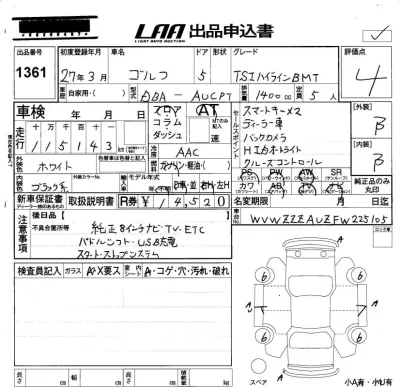 LAA 出品申込書
LIGHT AUTO AUCTION
出品番号 初度登録年月 車名 ドア 形 グレード 評価点
1361 27年3月 ゴルフ 5 TSIハイラインBMT 4
車歴 自家用・( ) 型式 DBA-AUCPT 排気量 1400cc 定員 5人
車検 年 月
フロア AT
コラム
ダッシュ 速
セールスポイント
スマートキー×2
ディーラー車
バックカメラ
HIDオートライト
クルーズコントロール
【外装】
B
【内装】
B
走行 115143
冷房 AAC
外装色 ホワイト
燃料 ガソリン・軽油・( )
内装色 ブラック系
輸入車
左H
PS PW AW SR
カワ AB TV ナビ
純正品のみ丸印
新車保証書 取扱説明書 R券 ¥14,520
名変期限 月 日迄
WVWZZZAUZFW225105
注意事項
後日品【 】
不具合箇所等
純正8インチナビ・TV・ETC
パドルシフト・USB充電
スタートストップシステム
検査員記入 ガラス A・X要ス 車内シート A・コゲ・穴・汚れ・破れ
長さ cm 幅 cm 高さ cm 積載量 kg
スペア
小A有・小U有